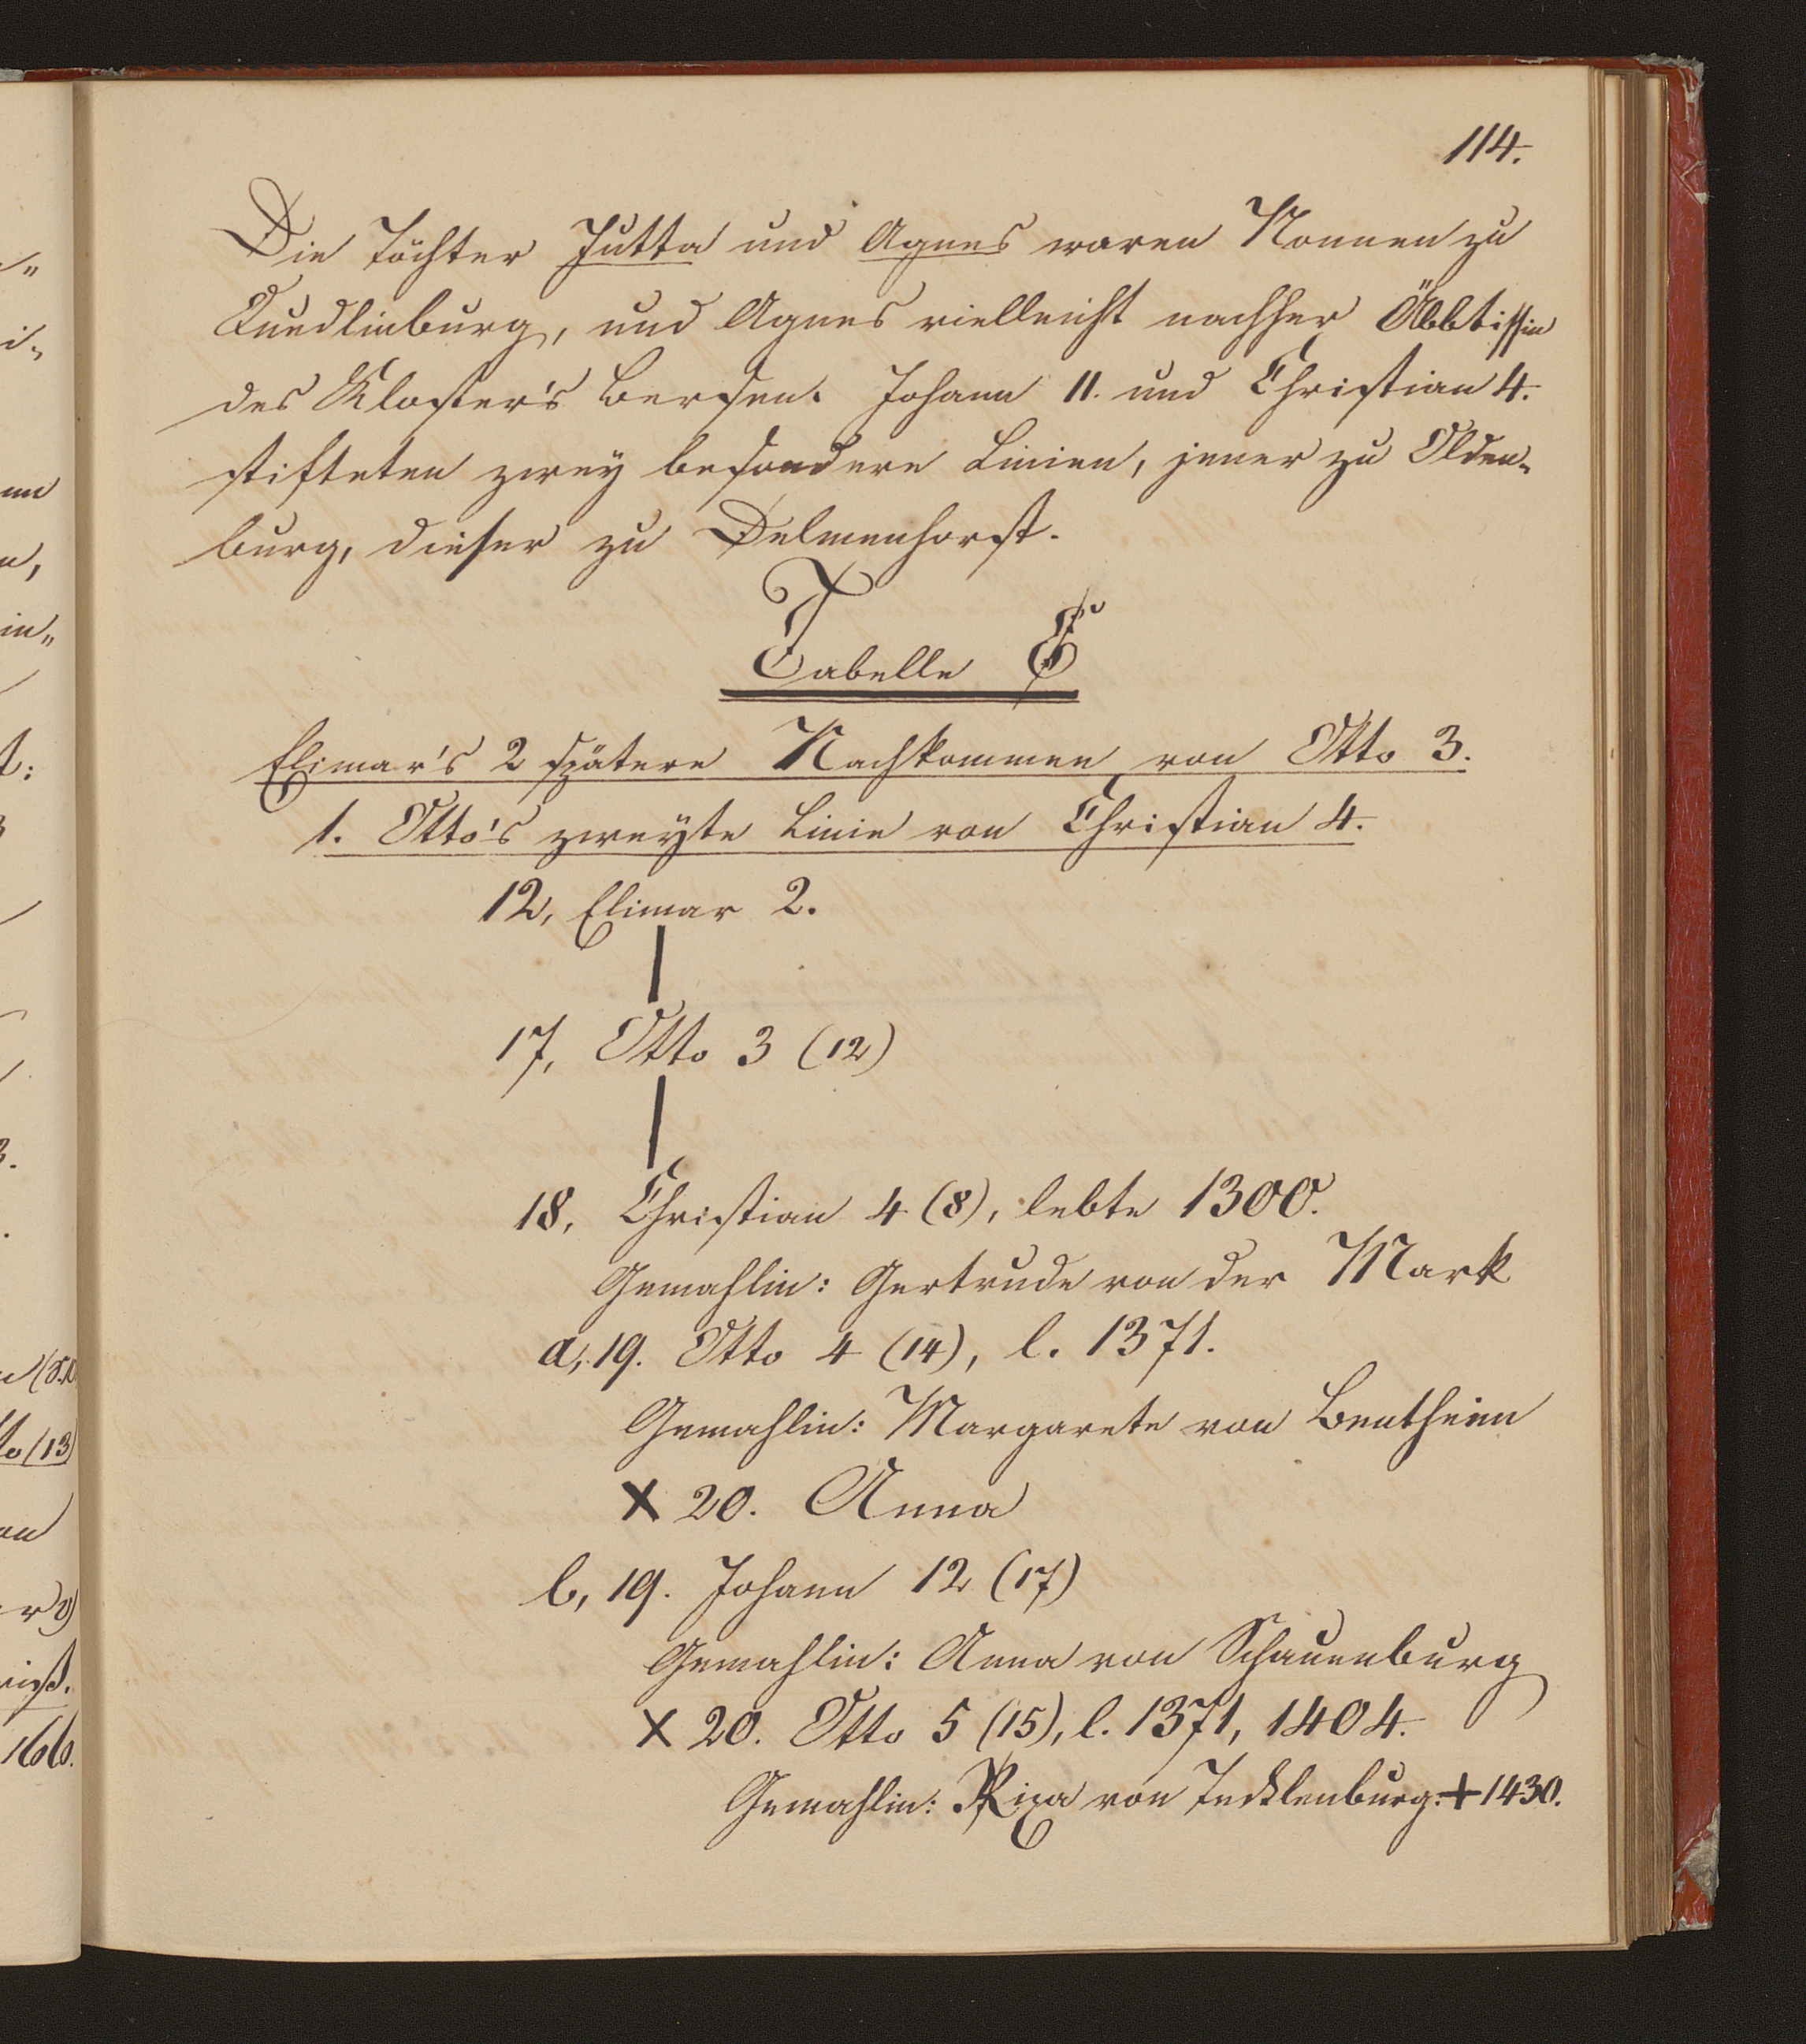 114.
Die Töchter Jutta und Agnes waren Nonnen zu
Quedlinburg, und Agnes vielleicht nachher Äbbtissin
des Kloster's Bersen. Johann 11. und Christian 4.
stifteten zwey besondere Linien, jener zu Olden-
burg, dieser zu Delmenhorst.
Tabelle
Elimar's 2 spätere Nachkommen von Otto 3.
1. Otto's zweyte Linie von Christian 4.
12, Elimar 2.
17, Otto 3 (12)
18, Christian 4 (8), lebte 1300.
Gemahlin: Gertrude von der Mark
a, 19. Otto 4 (14), l. 1371.
Gemahlin: Margarete von Bentheim
X 20. Anna
b, 19. Johann 12 (17)
Gemahlin: Anna von Schauenburg
X 20. Otto 5 (15), l. 1371, 1404.
Gemahlin: Rixa von Tecklenburg. + 1430.